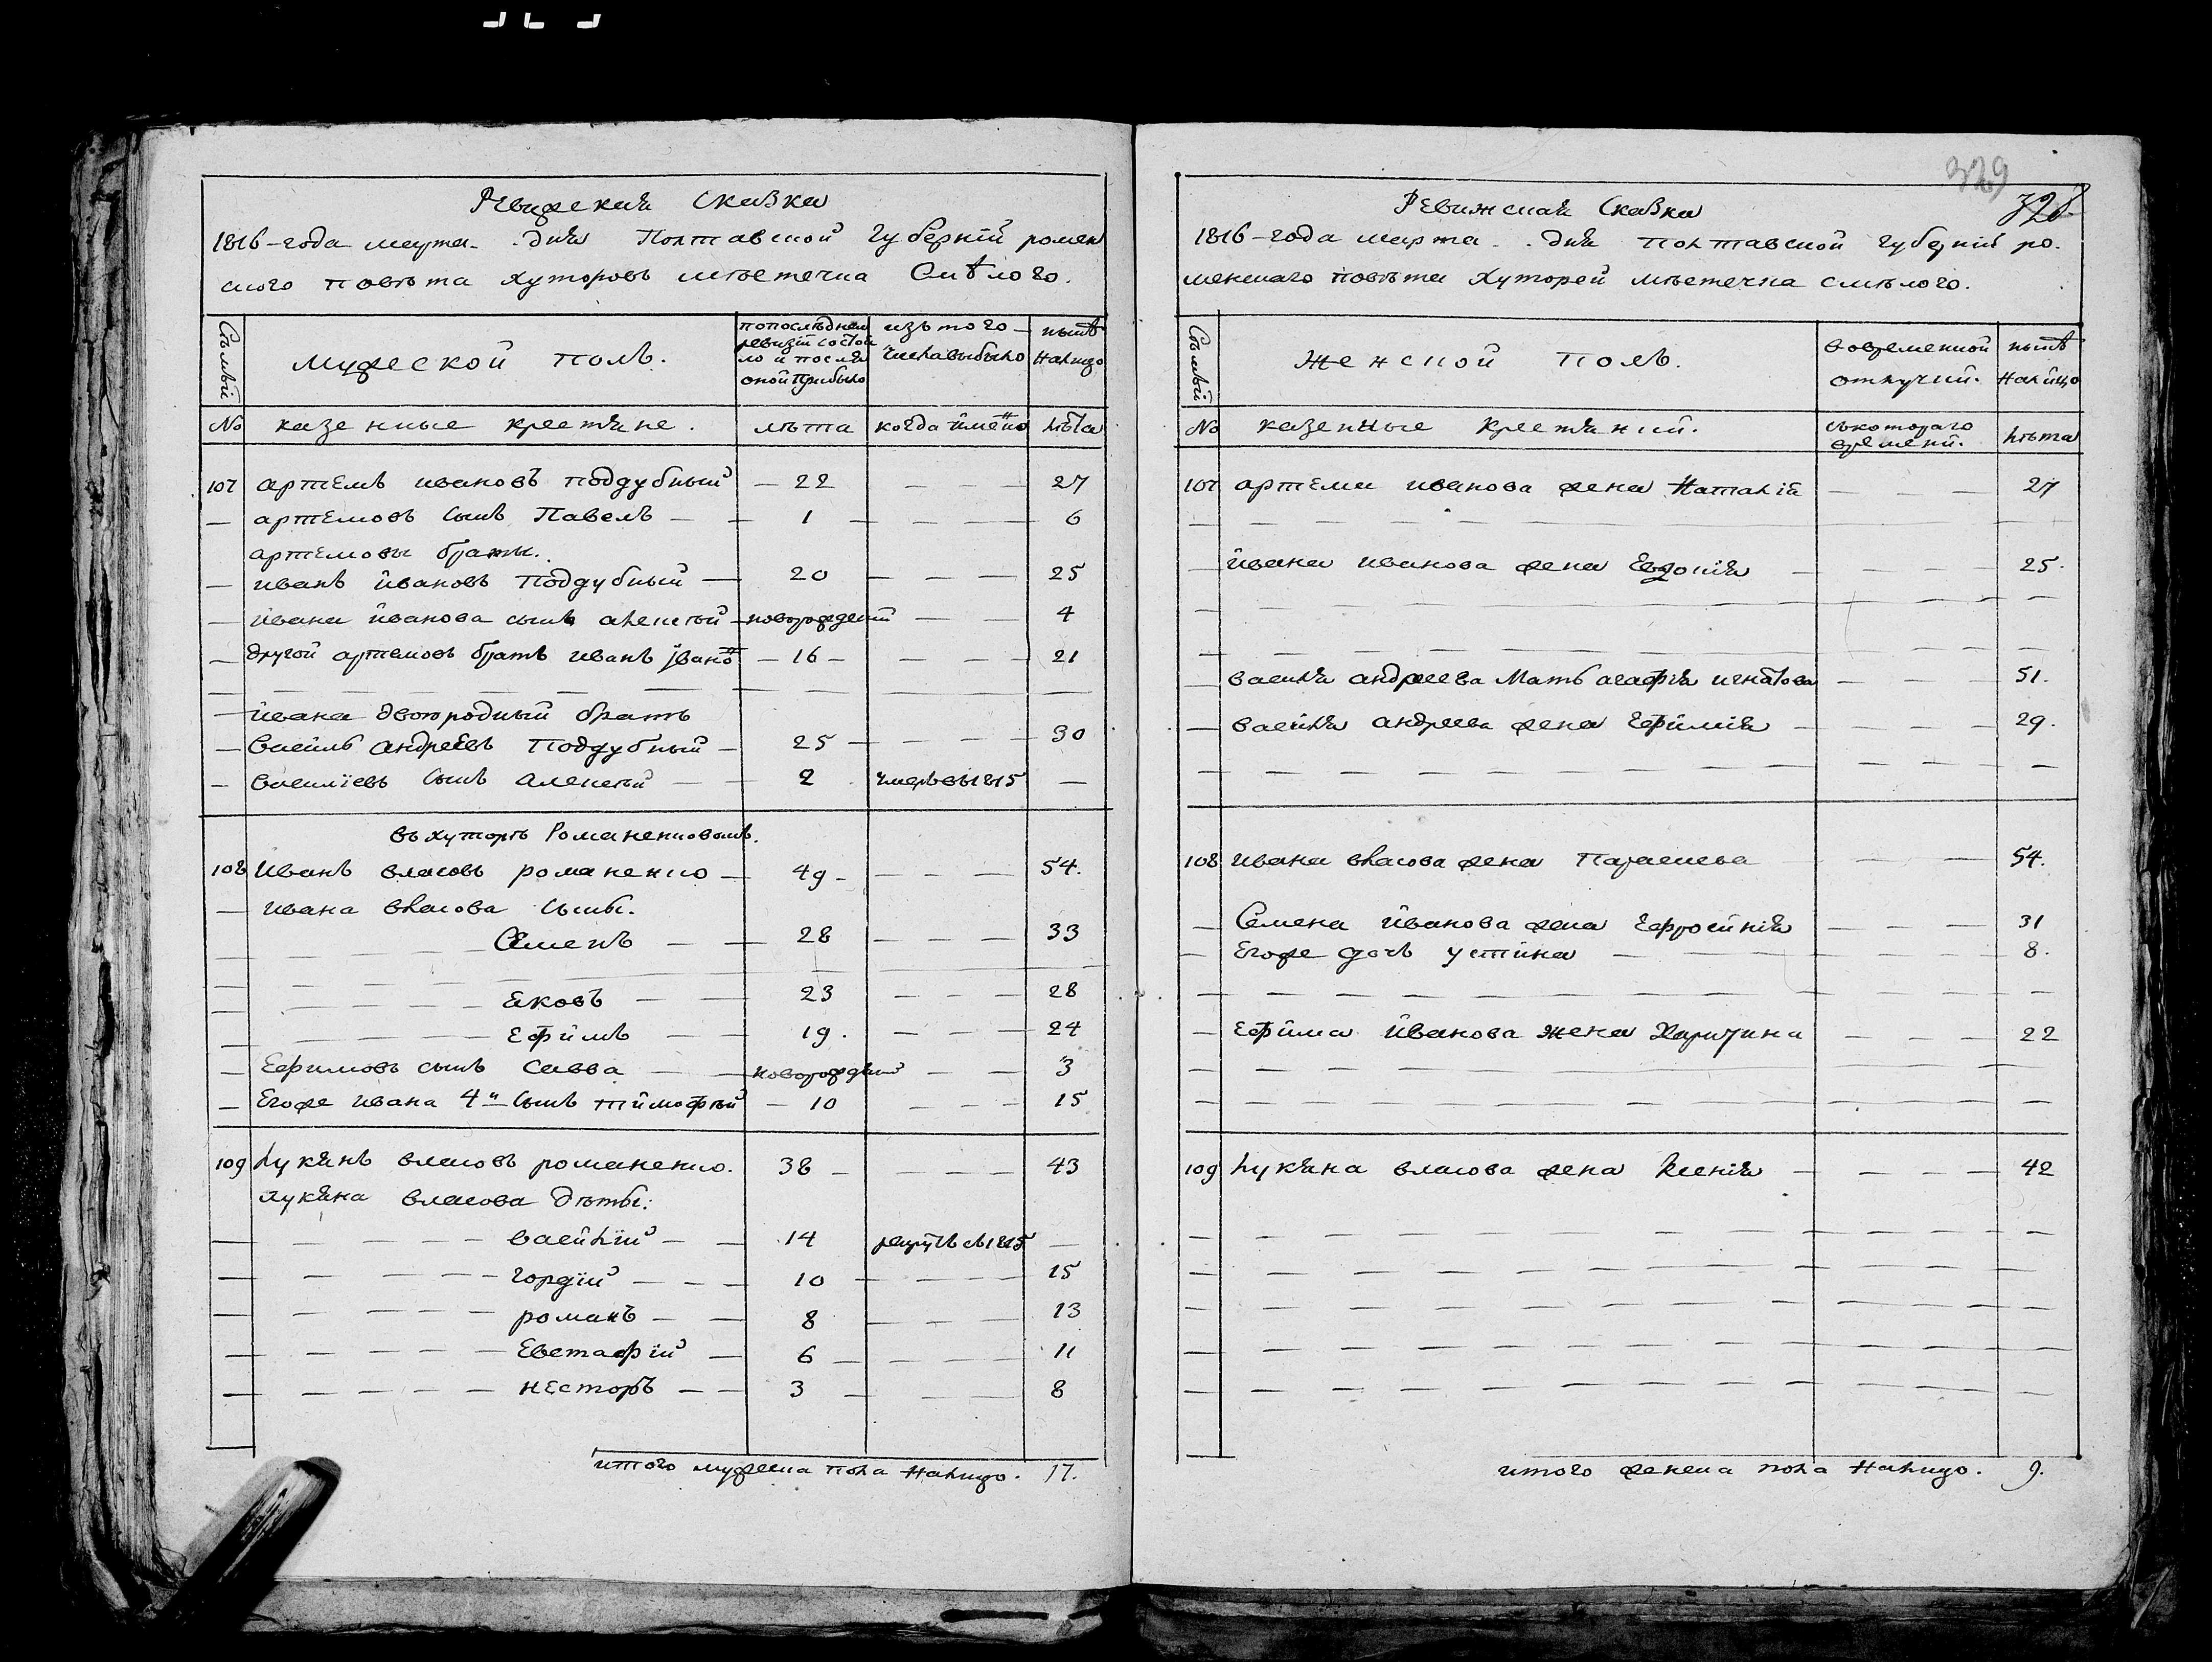 Ревижская Сказка
1816-года марта . дня Полтавской губернїи ромен
ского повѣта хуторовъ мѣстечка Смѣлого.
Сѣмьи
мужеской полъ.
попослѣдней ревизїи состоя
ло и послѣ
оной прибыло
изъ того
числа выбыло
нынѣ
налицо
№ казенные крестяне. лѣта когда имено лѣта
107 артемъ ивановъ поддубный — 22 — — — 27
— артемовъ сынъ Павелъ — — 1 — — — — 6
артемовы браты.
— иванъ ивановъ поддубный — 20 — — — 25
— ивана иванова сынъ алексѣй — новорожденый — — 4
— другой артемовъ братъ иванъ івано — 16 — — — — 21
— ивана двоюродный братъ
— василь андреевъ поддубный — 25 — — — — 30
— василїевъ сынъ алексѣй — — 2 умеръ въ 1815 —
въ хуторѣ Романенковомъ.
108 Иванъ власовъ романенко — 49 — — — — 54.
— ивана власова сыны.
— — — Семенъ — — 28 — — — 33
— — — — Яковъ — — 23 — — — 28
— — — — Ефимъ — — 19. — — — 24
— Ефимовъ сынъ Савва — — новорожденый — — 3
— Егоже ивана 4й сынъ тимофѣй — 10 — — — 15
109 Лукянъ власовъ романенко. 38 — — — — 43
лукяна власова дѣты:
— — — — — василїй — — 14 рекрутъ съ 1815 —
— — — — — гордїй — — — 10 — — — — 15
— — — — — романъ — — 8 — — — 13
— — — — — Евстафїй — 6 — — — — 11
— — — — — несторъ — — 3 — — — 8
итого мужеска пола налицо. 17.
329
328
Ревижская Сказка
1816-года марта . . дня полтавской губернїи ро.
менского повѣта хуторей мѣстечка смѣлого.
Сѣмьи
женской полъ.
во временной
отлучки.
нынѣ
налицо
№ казенные крестянки. съкотораго
времени. лѣта
107 артема иванова жена Наталїя — — — 27
— ивана иванова жена Евдокїя — — — — 25.
— василя андреева мать агафїя игнатова — — — 51.
— василя андреева жена Ефимїя — — — — 29.
108 ивана власова жена Параскева — — 54.
— Семена иванова жена Ефросинїя — — — 31
— Егоже дочь устина — — — — 8.
— Ефима иванова жена Харитина — — — 22
109 Лукяна власова жена Ксенїя — — — — 42
итого женска пола налицо. 9.